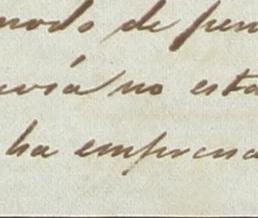 modo de pen
evía no esta
ha emprend